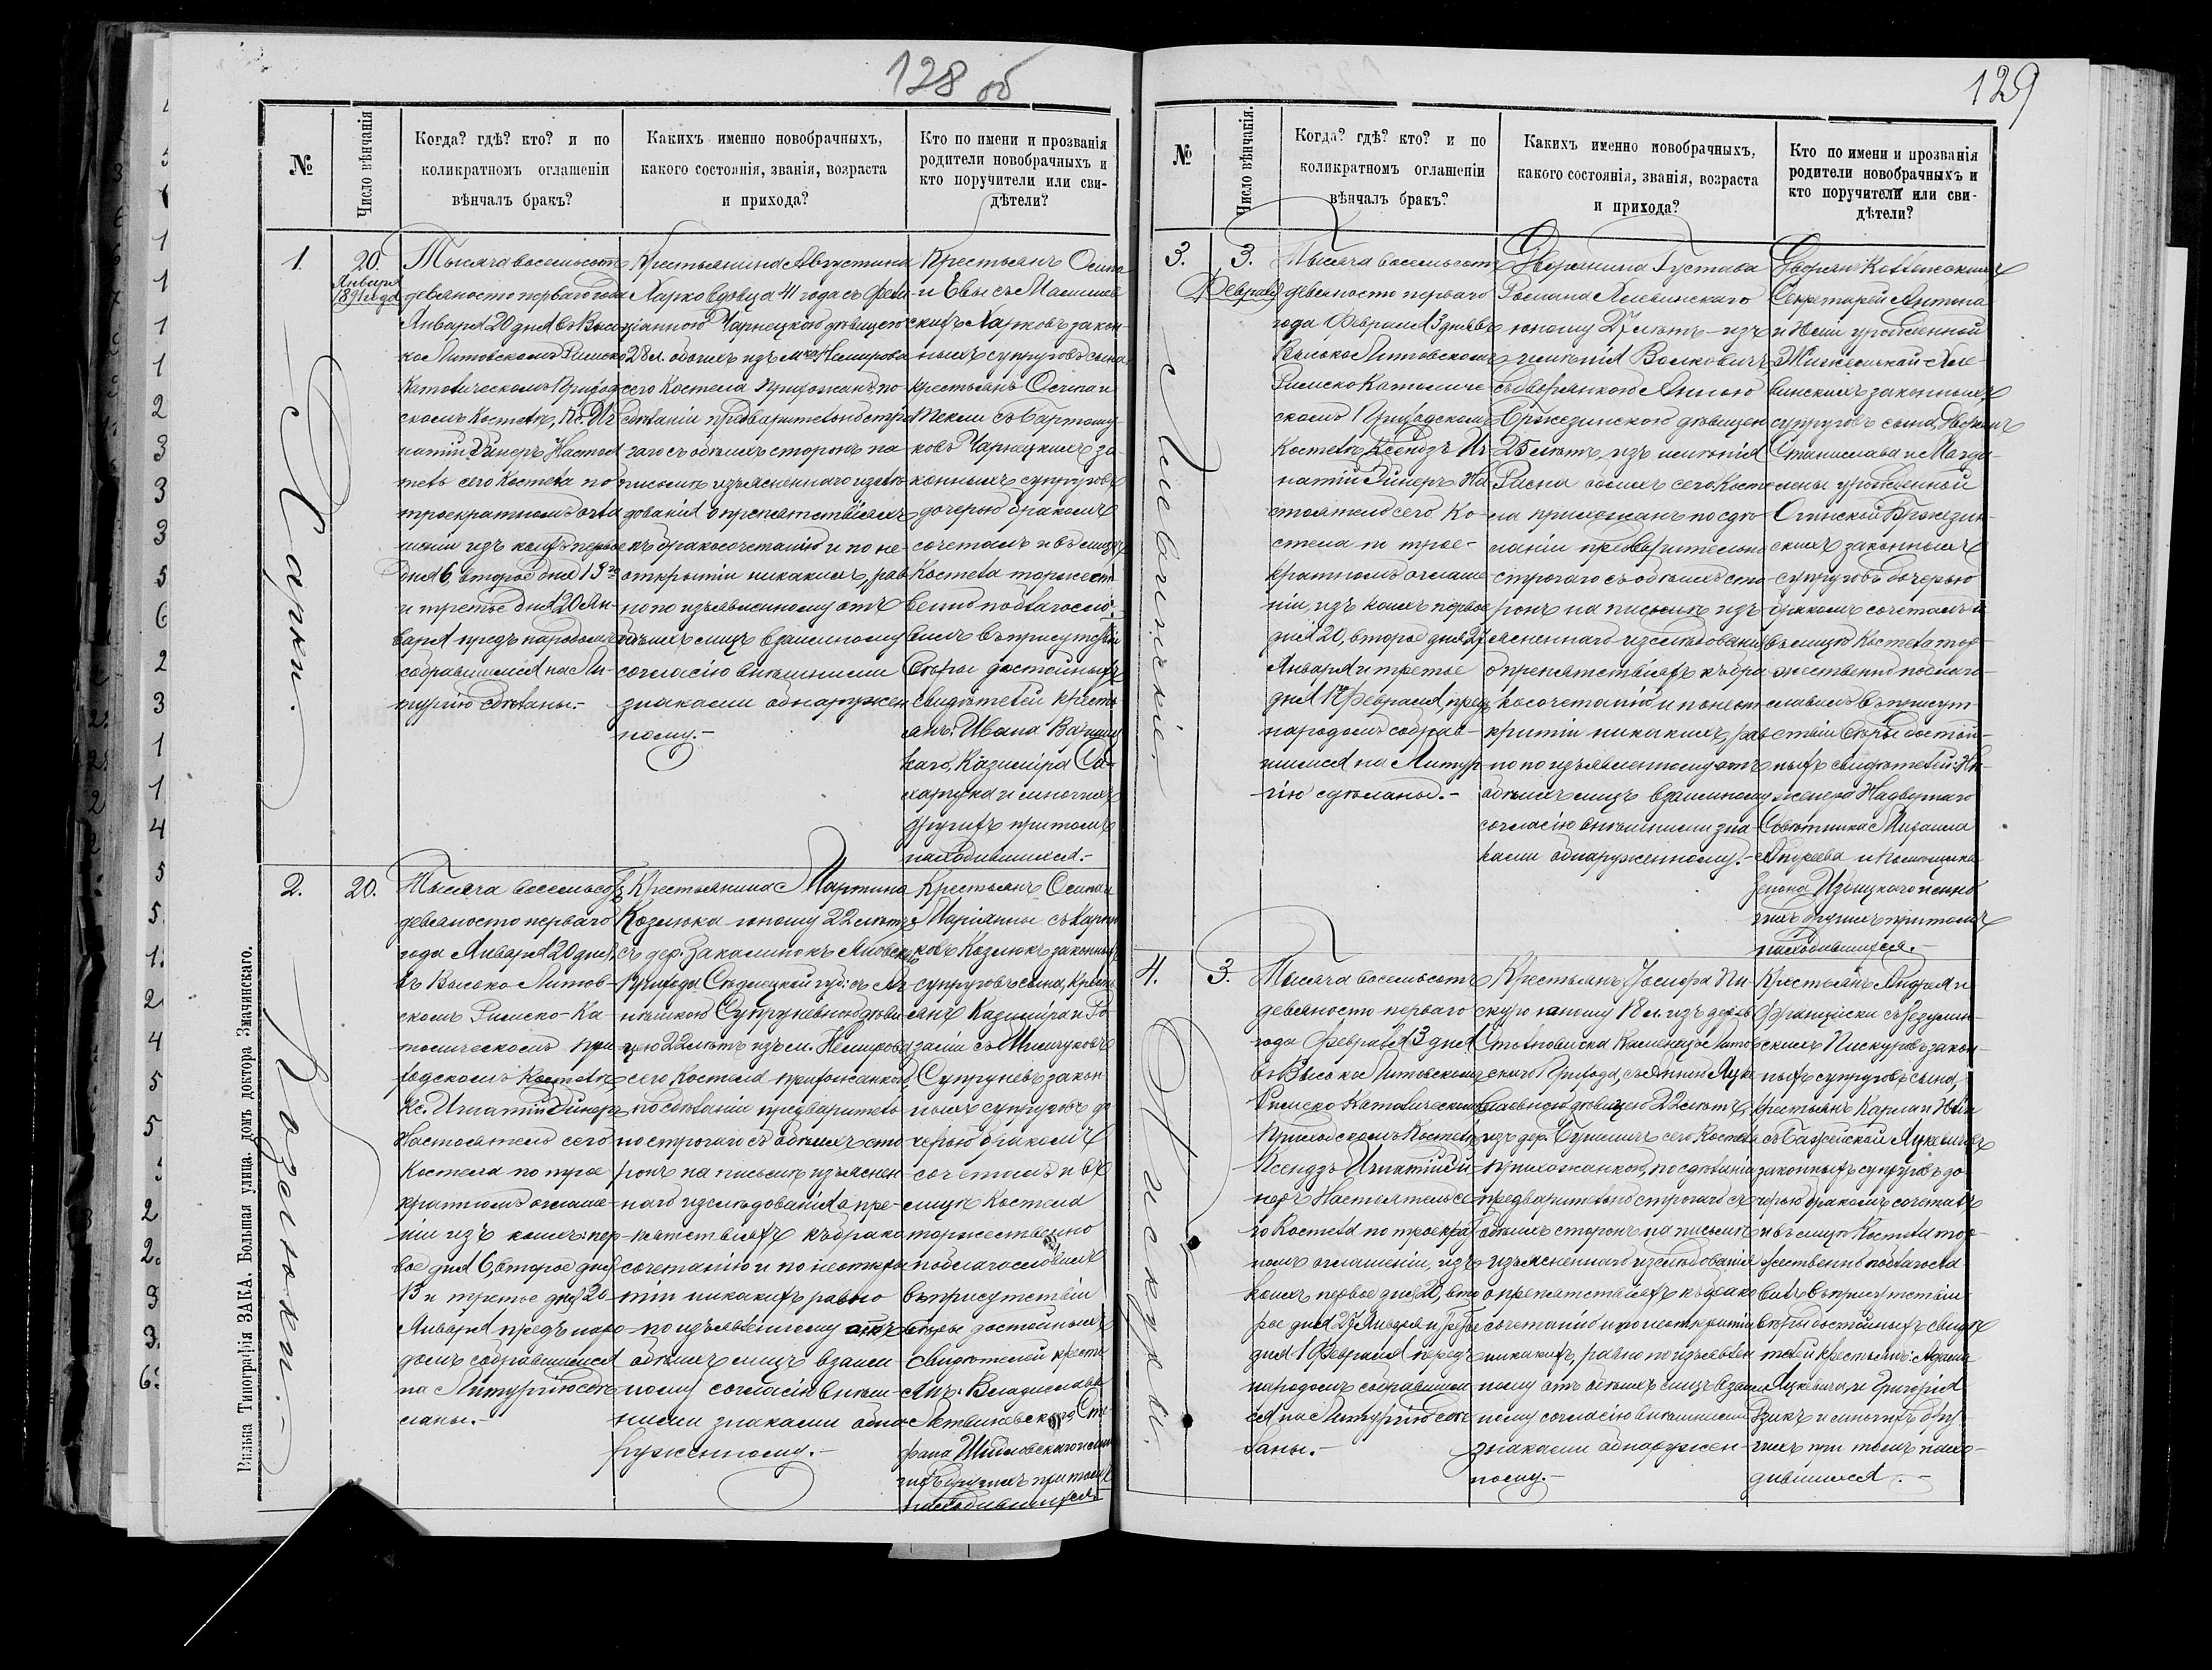 128 об
№
Число вѣнчанія
Когда? гдѣ? кто? и по
коликратномъ оглашеніи
вѣнчалъ бракъ?
Какихъ именно новобрачныхъ,
какого состоянія, званія, возраста
и прихода?
Кто по имени и прозванія
родители новобрачныхъ и
кто поручители или сви-
дѣтели?
1.
20.
Января
1891 года
Харки.
Тысяча восемьсотъ
девяносто перваго года
Января 20 дня въ Высо-
ко Литовскомъ Римско
Католическомъ Приход
скомъ Костелѣ, Кс. Иг
натій Настоя
тель сего Костела по
троекратномъ огла
шеніи изъ коихъ первое
дня 6 второе дня 13го
и третье дня 20 Ян-
варя предъ народомъ
собравшимся на Ли-
тургію сдѣланы.-
Крестьянина Августина
Харко вдовца 41 года съ Фели-
ціанною Чарнецкою дѣвицею
28 л. обоихъ изъ мка Немирова
сего Костела Прихожанъ, по
сдѣланіи предварительно стро
гаго съ обоихъ сторонъ на
письмѣ изъясненнаго изслѣ
дованія о препятствіяхъ
къ бракосочетанію и по не-
открытіи никакихъ, рав
но по изъявленному отъ
обоихъ лицъ взаимному
согласію внѣшними
знаками обнаружен
ному.-
Крестьянъ Осипа
и Евы съ
скихъ Харковъ закон-
ныхъ супруговъ сына,
крестьянъ Осипа и
Теклы съ Бартошу-
ковъ Чарнецкихъ за-
конныхъ супруговъ
дочерью бракомъ
сочеталъ и въ лицѣ
Костела торжест
венно поблагосло-
вилъ въ присутствіи
Вѣры достойныхъ
Свидѣтелей кресть
янъ: Ивана
каго, Казиміра Са-
харчука и многихъ
другихъ притомъ
находившихся.-
2.
20.
Козлюки.-
Тысяча восемьсотъ
девяносто перваго
года Января 20 дня
въ Высоко Литов-
скомъ Римско-Ка-
толическомъ При
ходскомъ Костелѣ
Кс. Игнатій
Настоятель сего
Костела по трое
кратномъ оглаше-
ніи изъ коихъ: пер-
вое дня 6, второе дня
13 и третье дня 20
Января предъ наро-
домъ собравшимся
на Литургію сдѣ
ланы.-
Крестьянина Мартина
Козлюка юношу 22 лѣтъ
съ дер. Закалинокъ
Прихода Сѣдлецкой губ: съ Аг-
нѣшкою Супруневною дѣви
цею 22 лѣтъ изъ м. Немирова
сего Костела прихожанкою,
по сдѣланіи предваритель
но строгаго съ обоихъ сто
ронъ на письмѣ изъяснен-
наго изслѣдованія о пре-
пятствіяхъ къ брако
сочетанію и по неоткры
тіи никакихъ равно
по изъявленному отъ
обоихъ лицъ взаим
ному согласію внѣш-
ними знаками обна
руженному.-
Крестьянъ Осипа и
Маріянны съ
ковъ Козлюкъ законныхъ
супруговъ сына, Кресть
янъ Казиміра и Ро
заліи съ
Супруневъ закон
ныхъ супруговъ до
черью бракомъ
сочеталъ и въ
лицѣ Костела
торжественно
поблагословилъ
въ присутствіи
Вѣры достойныхъ
Свидѣтелей кресть
янъ: Владислава
Литвиневскаго, Сте
фана Шидловскаго и мно
гихъ другихъ притомъ
находившихся.-
Вильна Типографія ЗАКА. Большая улица. домъ доктора Змачинскаго.
129
№
Число вѣнчанія.
Когда? гдѣ? кто? и по
коликратномъ оглашеніи
вѣнчалъ бракъ?
Какихъ именно новобрачныхъ,
какого состоянія, званія, возраста
и прихода?
Кто по имени и прозванія
родители новобрачныхъ и
кто поручители или сви-
дѣтели?
3.
3.
Февраля
Тысяча восемьсотъ
девяносто перваго
года Февраля 3 дня въ
Высоко Литовскомъ
Римско Католиче-
скомъ Приходскомъ
Костелѣ Ксендзъ Иг-
натій На
стоятель сего Ко-
стела по трое-
кратномъ оглаше
ніи, изъ коихъ первое
дня 20, второе дня 27
Января и третье
дня 1го Февраля, предъ
народомъ собрав-
шимся на Литур-
гію сдѣланы.-
Дворянина Густава
Романа
юношу 27 лѣтъ - изъ
имѣнія Волковичъ
съ дворянкою Анною
Бржезинскою дѣвицею
25 лѣтъ, изъ имѣнія
Рясна обоихъ сего Косте
ла прихожанъ по сдѣ-
ланіи предварительно
строгаго съ обоихъ сто
ронъ на письмѣ изъ-
ясненнаго изслѣдованія
о препятствіяхъ къ бра
косочетанію и по неот
крытіи никакихъ, рав
но по изъявленному отъ
обоихъ лицъ взаимному
согласію внѣшними зна
ками обнаруженному.-
Дворянъ Коллежскихъ
Секретарей Антона
и урожденной
винскихъ законныхъ
супруговъ сына, Дворянъ
Станислава и Магда-
лены урожденной
Огинской Бржезин-
скихъ законныхъ
супруговъ дочерью
бракомъ сочеталъ и
въ лицѣ Костела тор-
жественно поблаго-
славилъ въ присут-
ствіи Вѣры достой-
ныхъ свидѣтелей: Ин-
женера Надворнаго
Совѣтника Михаила
Андреева и помѣщика
Зенона Избицкаго и мно
гихъ другихъ притомъ
находившихся.-
4.
3.
Пискуры.
Тысяча восемьсотъ
девяносто перваго
года Февраля 3 дня
въ Высоко Литовскомъ
Римско Католическомъ
Приходскомъ Костелѣ
Ксендзъ Игнатій
Настоятель се
го Костела по троекрат
номъ оглашеніи, изъ
коихъ первое дня 20, вто
рое дня 27 Января и третье
дня 1 Февраля передъ
народомъ собравшим
ся на Литургію сдѣ
ланы.-
Крестьянъ Іосифа Пи
скуро юношу 18 л. изъ дер.
Каменецъ Литов
скаго Прихода, съ Анною Луке
вичевною дѣвицею 22 лѣтъ,
изъ дер. сего Костела
прихожанкою, по сдѣланіи
предварительно строгаго съ
обоихъ сторонъ на письмѣ
изъясненнаго изслѣдованія
о препятствіяхъ къ брако
сочетанію и по неоткрытіи
никакихъ, равно по изъявлен
ному отъ обоихъ лицъ взаим
ному согласію внѣшними
знаками обнаружен-
ному.-
Крестьянъ Андрея и
Францишки съ
скихъ Пискуровъ закон-
ныхъ супруговъ сына,
крестьянъ Карла и
съ Лукевичевъ
законныхъ супруговъ до-
черью бракомъ сочеталъ
и въ лицѣ Костела тор-
жественно поблагосла
вилъ въ присутствіи
вѣры достойныхъ свидѣ
телей Крестьянъ: Адама
Лукевича, и Григорія
и многихъ дру
гихъ при томъ нахо-
дившихся.-